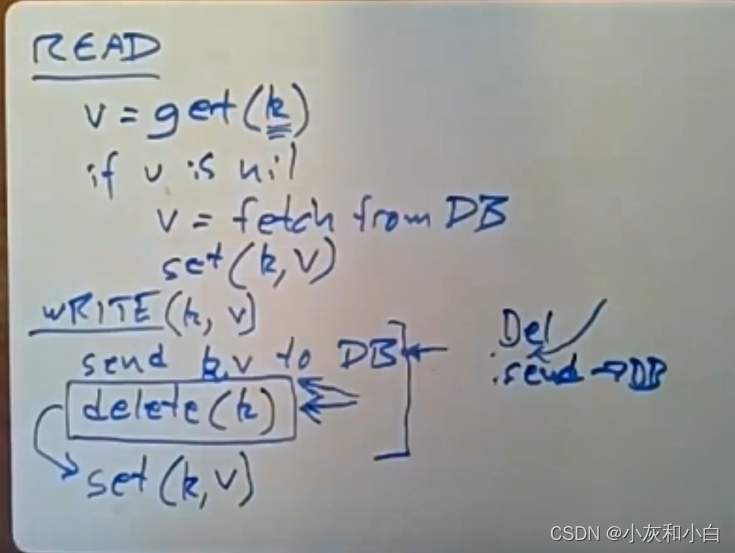 READ
v = get(k)
if v is nil
v = fetch from DB
set(k, v)
WRITE(k, v)
send k,v to DB
delete(k)
set(k, v)
Del
send → DB
CSDN @小灰和小白